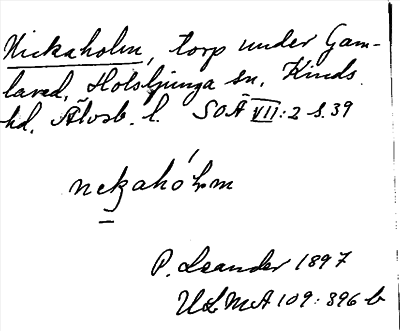 Nickaholm, torp under Gam-
lared, Holsljunga sn, Kinds
hd. Älvsb. l. SOÄ VII:2 s. 39
nekahólm
P. Leander 1897
ULMA 109:396 b